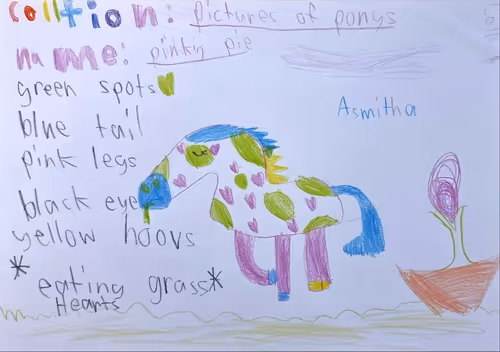 colltion: pictures of ponys
name: pinky pie
green spots
Asmitha
blue tail
pink legs
black eye
yellow hoovs
*eating grass*
Hearts